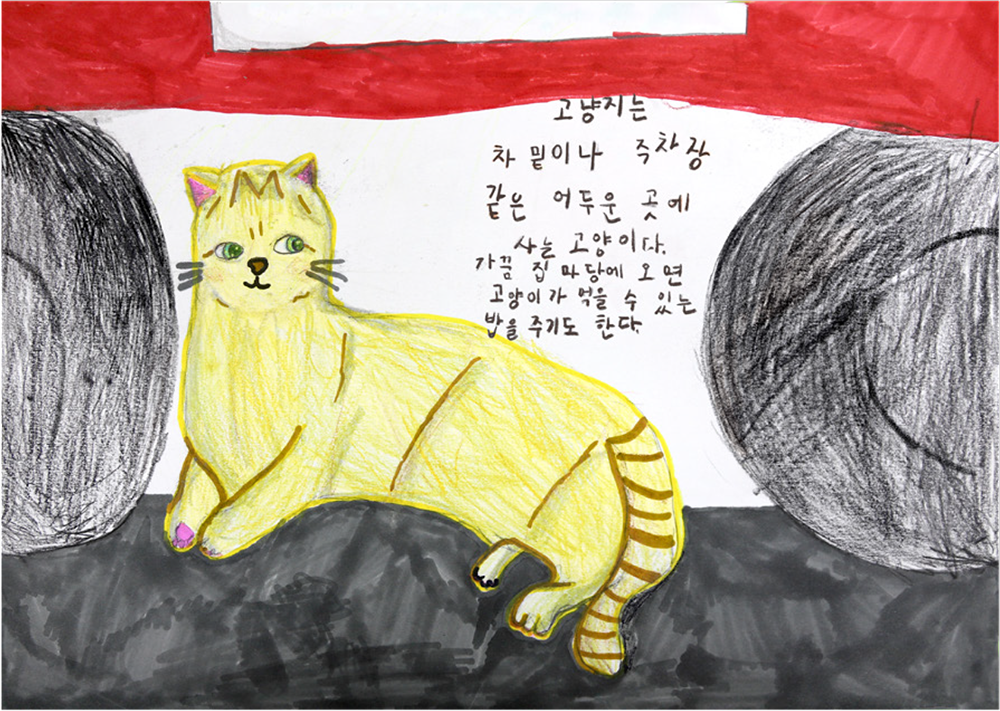 고냥지는
차 밑이나 주차장
같은 어두운 곳에
사는 고양이다.
가끔 집 마당에 오면
고양이가 먹을 수 있는
밥을 주기도 한다.